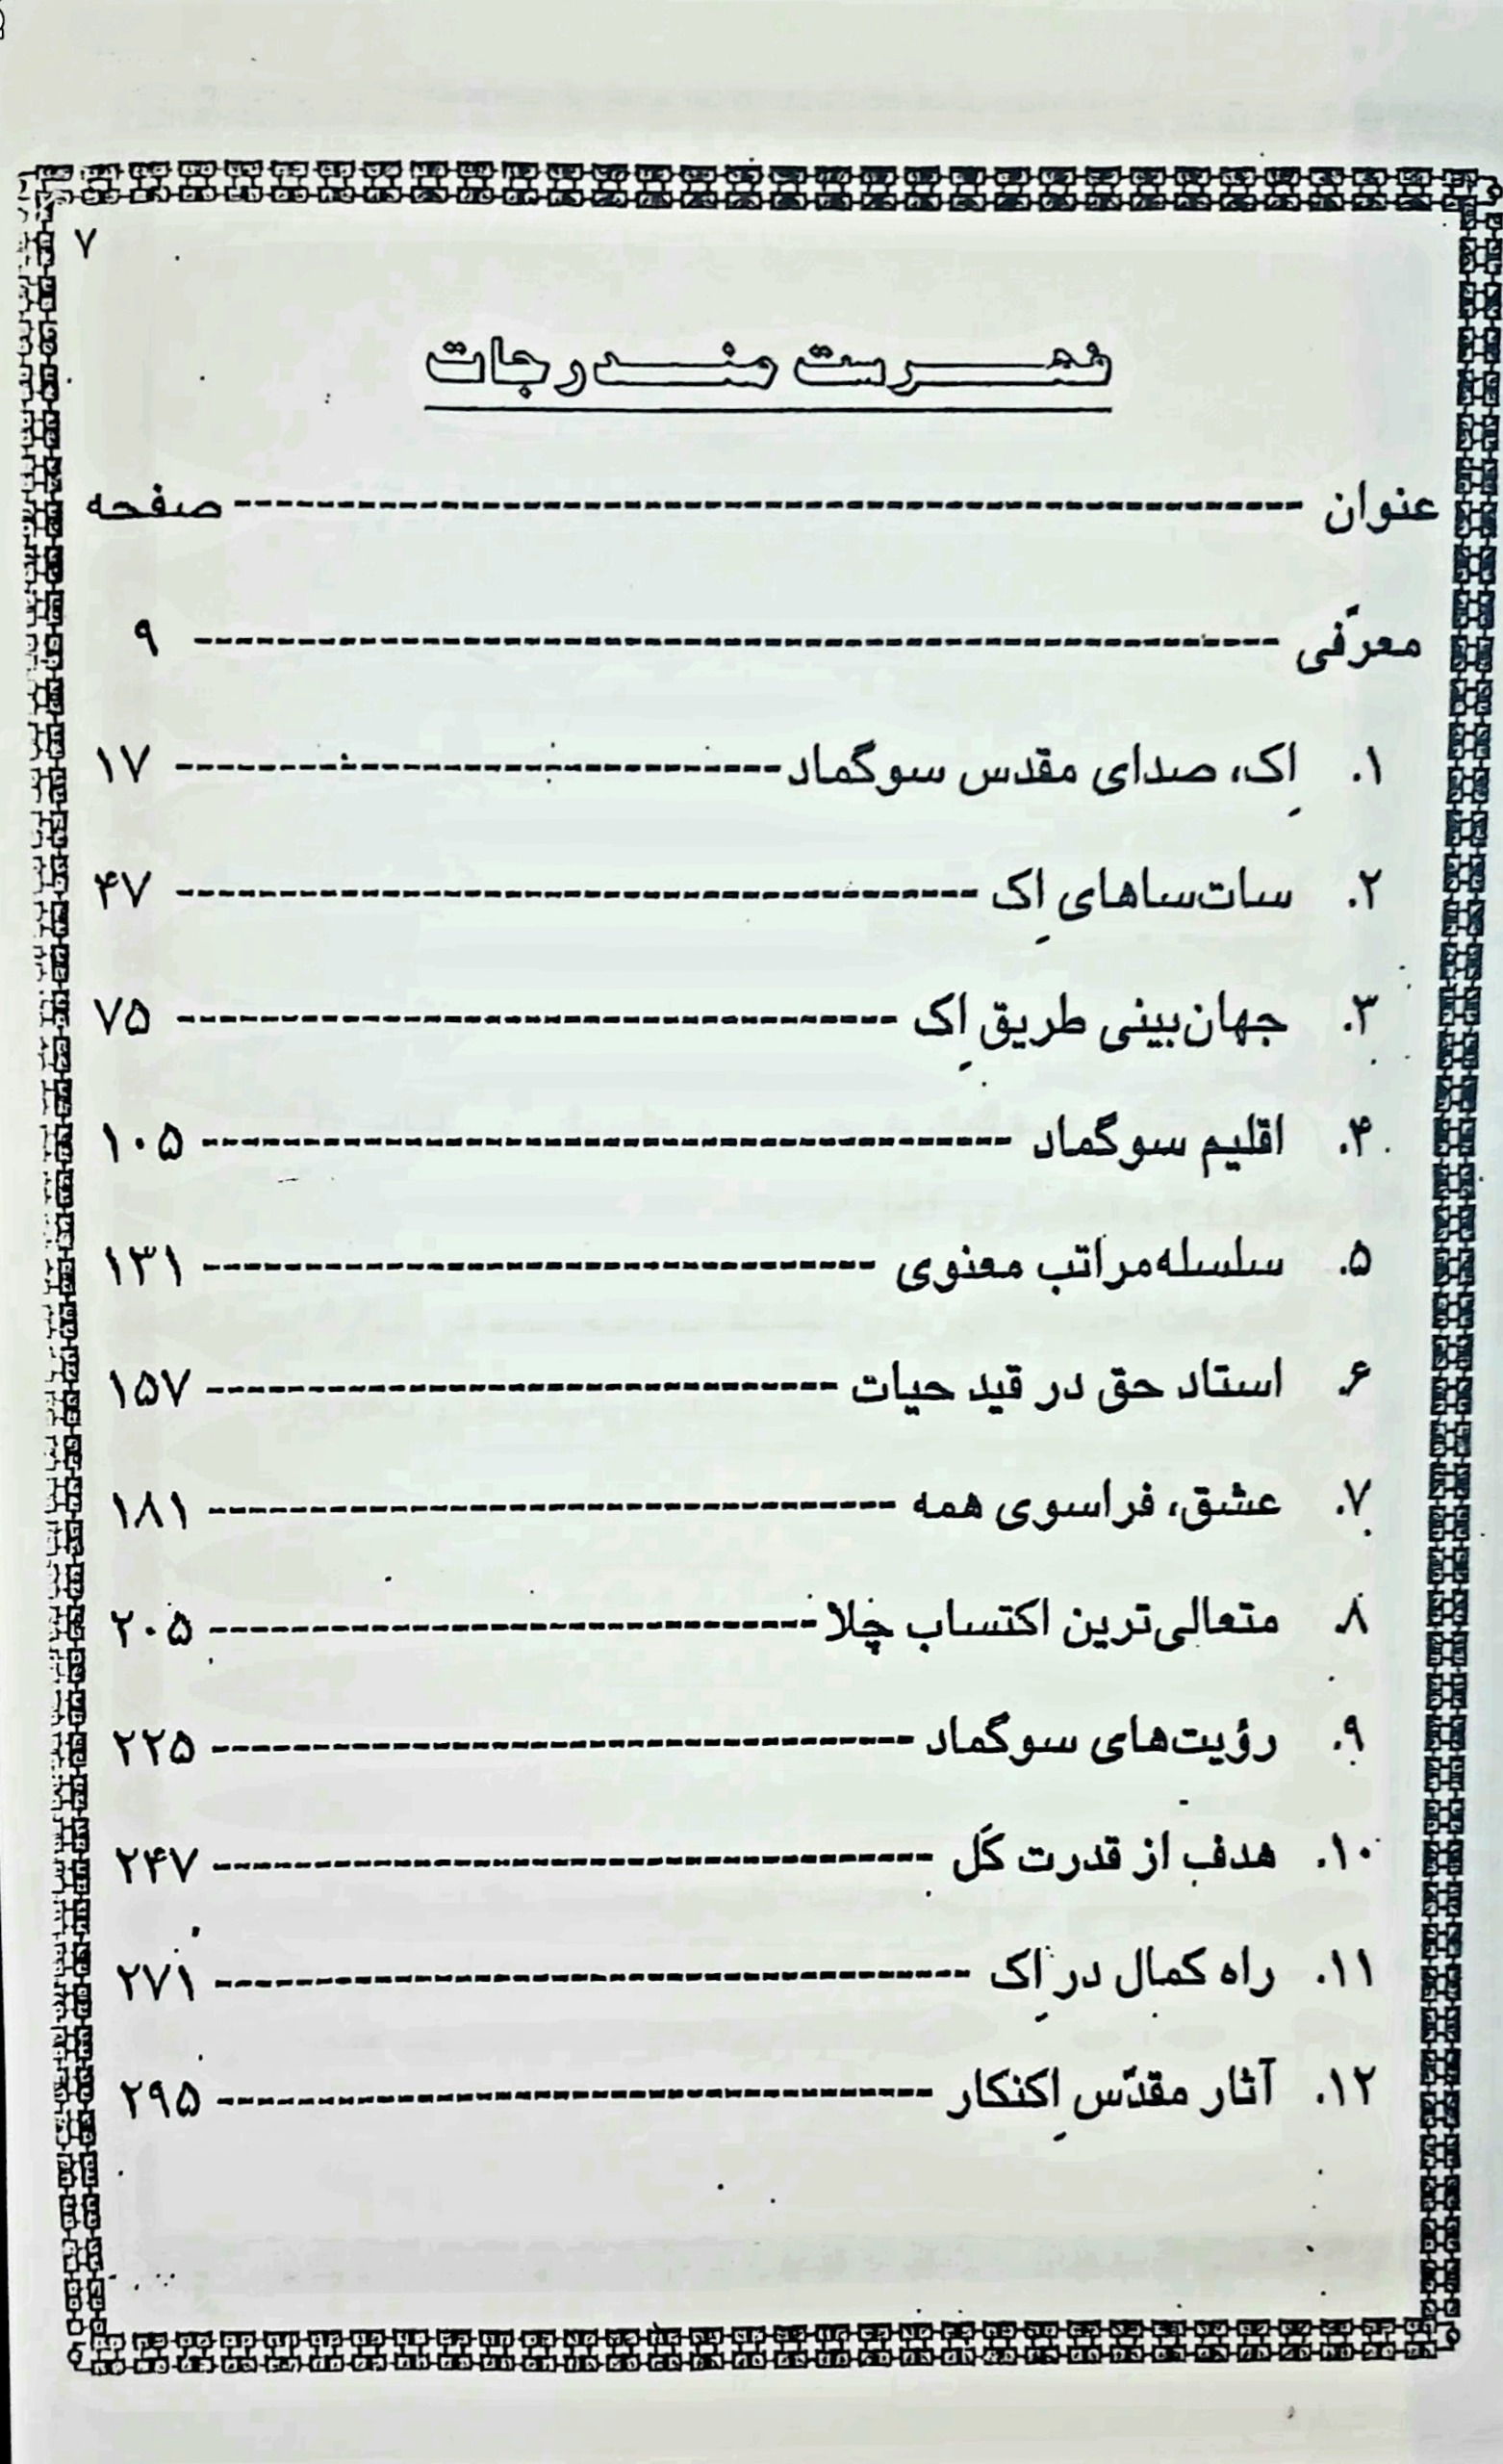 ۷
فهرست مندرجات
عنوان ---------------------------------------------------- صفحه
معرّفی ---------------------------------------------------- ۹
۱. اِک، صدای مقدس سوگماد ----------------------------- ۱۷
۲. سات‌ساهای اِک --------------------------------------- ۴۷
۳. جهان‌بینی طریق اِک ----------------------------------- ۷۵
۴. اقلیم سوگماد ---------------------------------------- ۱۰۵
۵. سلسله‌مراتب معنوی --------------------------------- ۱۳۱
۶. استاد حق در قید حیات ------------------------------- ۱۵۷
۷. عشق، فراسوی همه --------------------------------- ۱۸۱
۸. متعالی‌ترین اکتساب چلا ----------------------------- ۲۰۵
۹. رؤیت‌های سوگماد ---------------------------------- ۲۲۵
۱۰. هدف از قدرت کَل ----------------------------------- ۲۴۷
۱۱. راه کمال در اِک ------------------------------------- ۲۷۱
۱۲. آثار مقدّس اِکنکار ----------------------------------- ۲۹۵